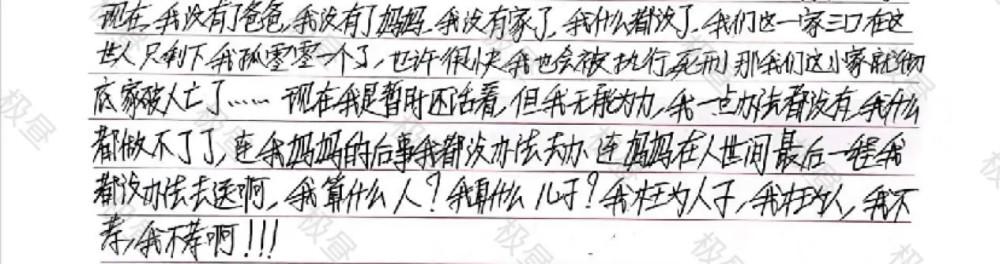 现在,我没有了爸爸,我没有了妈妈,我没有家了,我什么都没了。我们这一家三口在这
世人只剩下我孤零零一个了,也许很快我也会被执行死刑那我们这小家就彻
底家破人亡了……现在我是暂时还活着,但我无能为力,我一点办法都没有,我什么
都做不了了,连我妈妈的后事我都没办法去办 连妈妈在人世间最后一程我
都没办法去送啊,我算什么人?我算什么儿子?我枉为人子,我枉为人,我不
孝,我不孝啊!!!
极昼